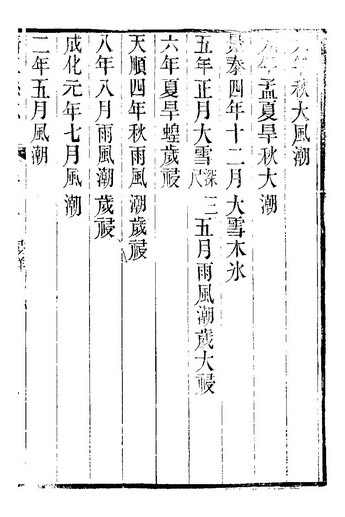 年秋大風潮
年孟夏旱秋大潮
景泰四年十二月大雪木氷
五年正月大雪深三尺五月雨風潮歲大祲
六年夏旱蝗歲祲
天順四年秋雨風潮歲祲
八年八月雨風潮歲祲
成化元年七月風潮
二年五月風潮